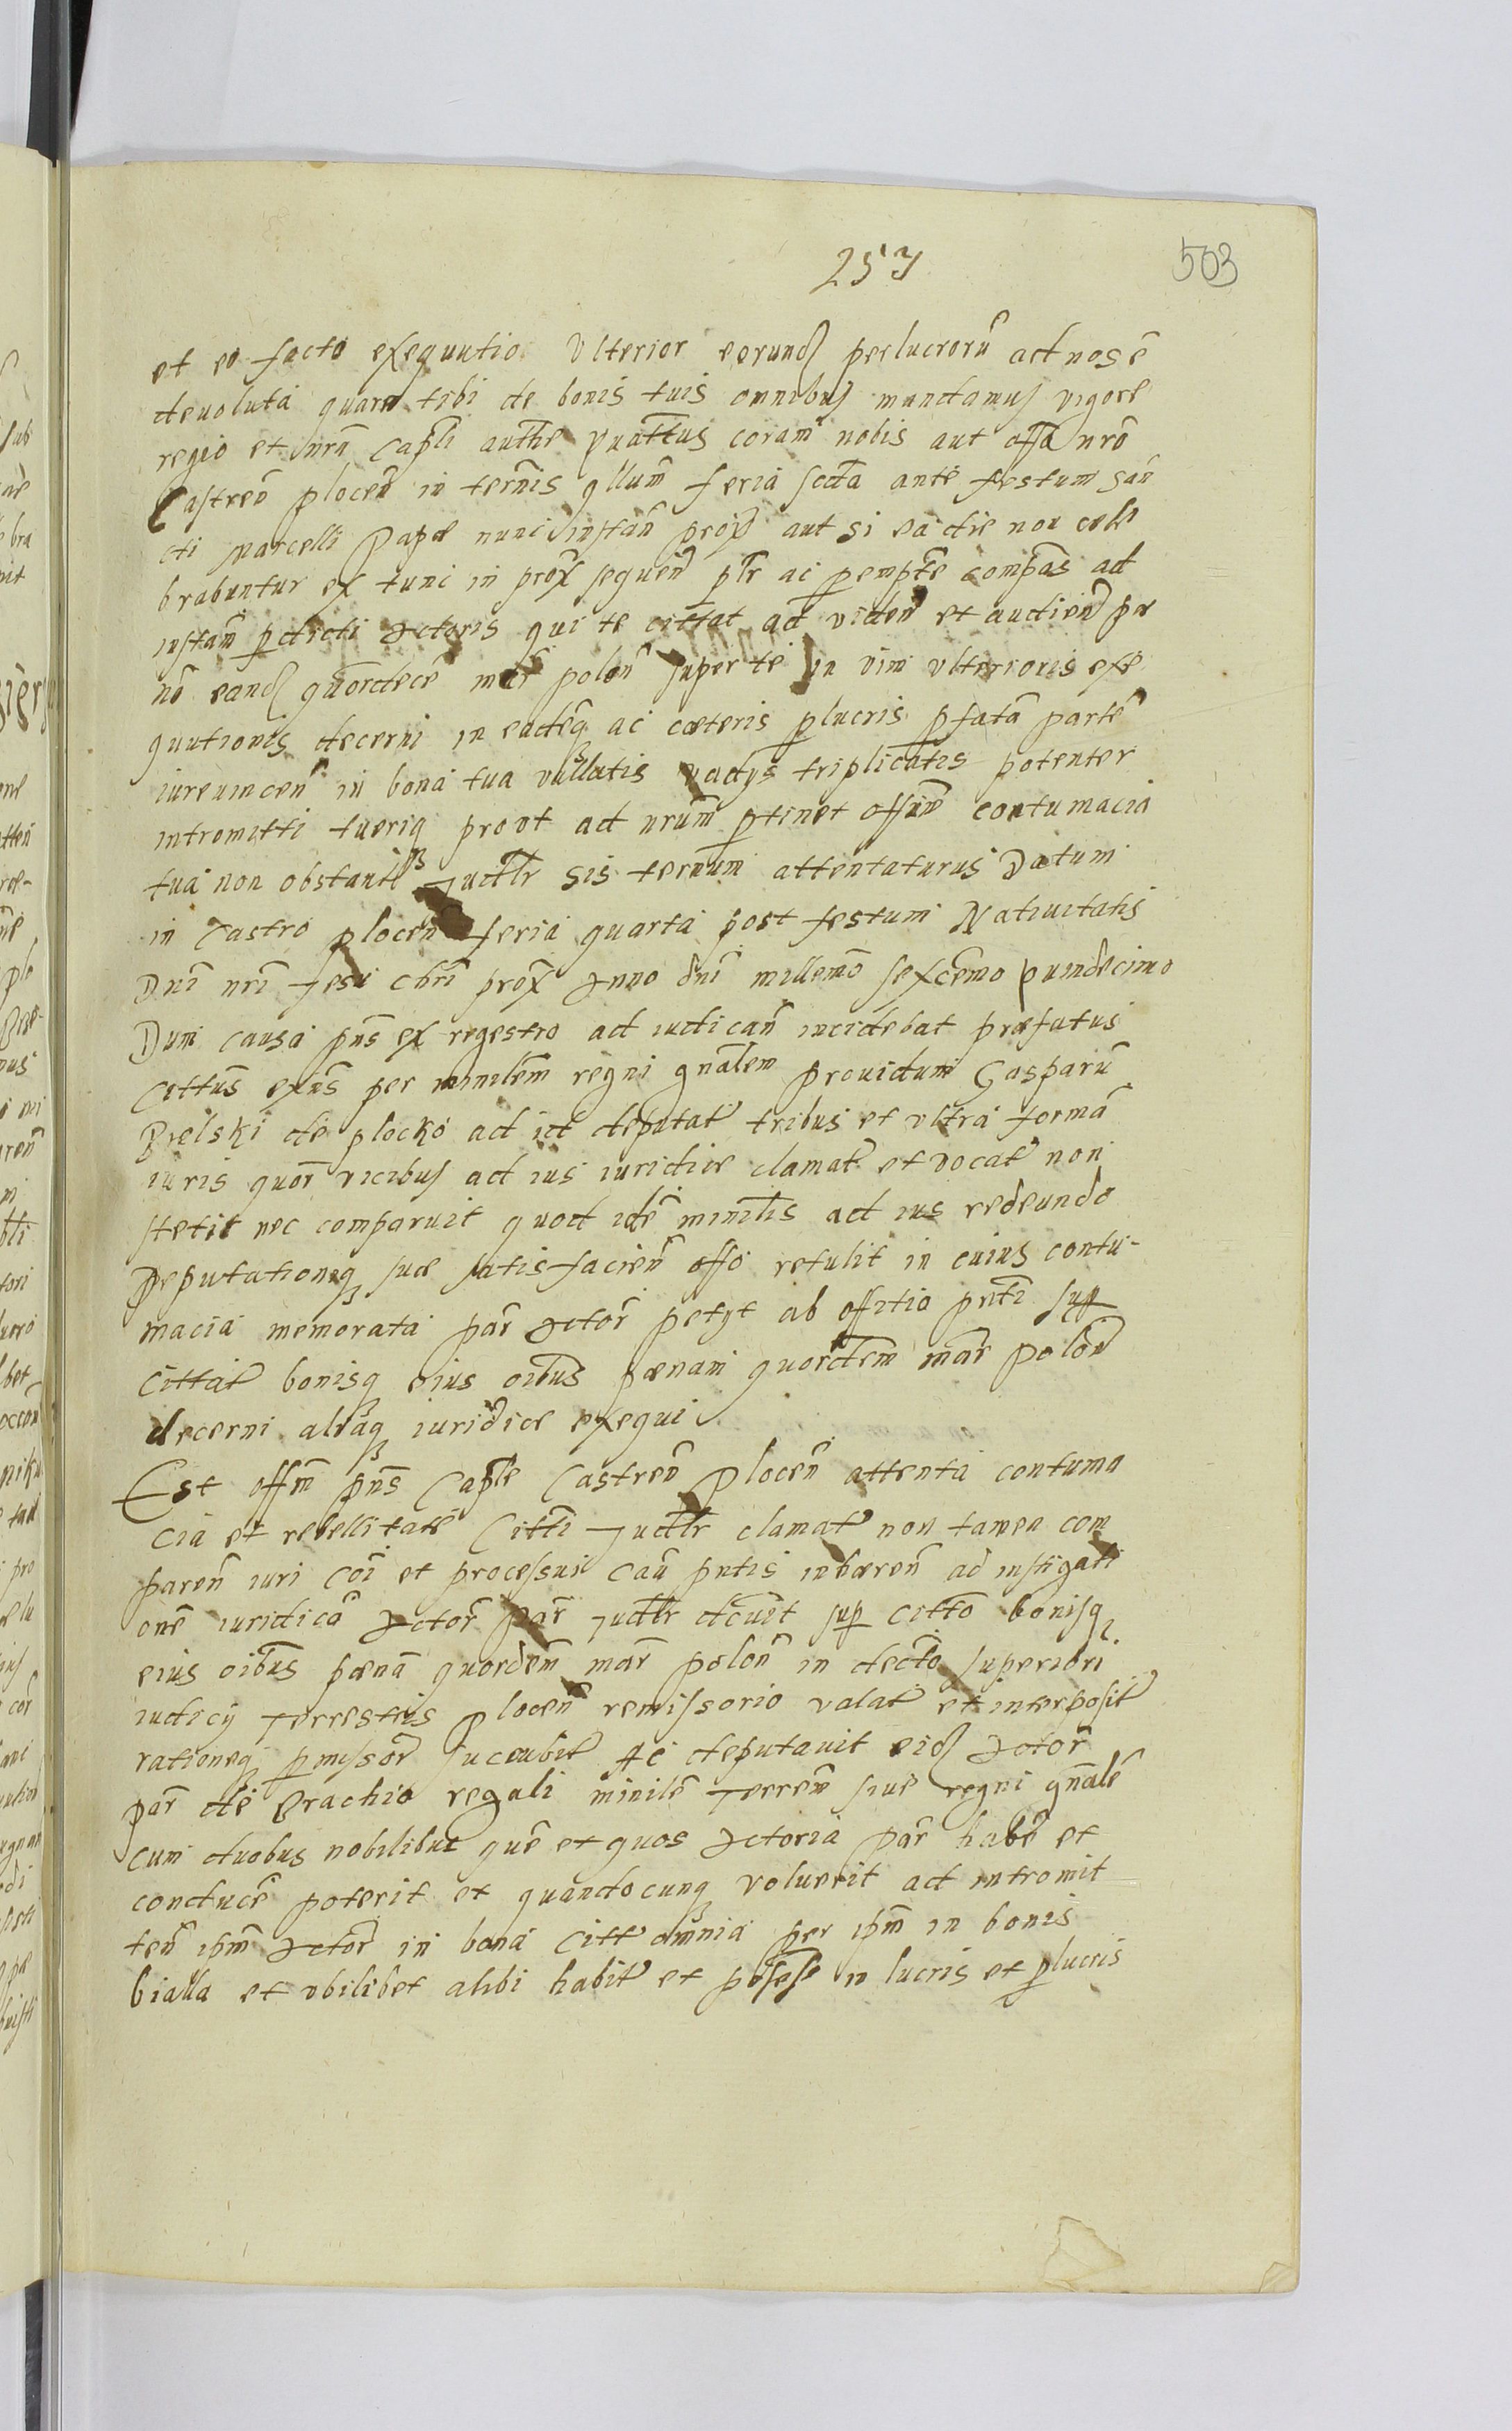 257
503
et eo facto exequutio ulterior eorund perlucrorũ ad nos ẽ
devoluta quare tibi de bonis tuis omnibus mandamus vigore
regio et nrã Capli authe quattus coram nobis aut offo nrõ
Castren plocen in termis qllum feria scda ante festum San
cti Marcelli Papæ nunc instañ prox aut si ea die non cele
brabuntur ex tunc in prox sequen plr ac pempte compas ad
instam pdicti Actoris qui te cittat ad viden et audien pæ
nã eand quordecẽ mar polon super te in vim ulterioris exe
qutionis decerni in eademq ac cæteris plucris pfatã partẽ
iurevincen in bona tua vallatis vadys triplicatis potenter
intromitti tueriq prout ad nrum ptinet offim contumacia
tua non obstante Judtlr sis ternum attentaturus Datum
in Castro plocen feria quarta post festum Nativitatis
Dni nri Jesu Chri prox Anno dni millemo sexcemo quindecimo
Dum causa pns ex regestro ad iudican incidebat præfatus
Cittus exns per minilem regni gnalem providum Gasparũ
Bielski de plocko ad id deputat tribus et ultra formã
iuris quor vicibus ad ius iuridice clamat et vocat non
stetit nec comparuit quod idẽ minilis ad ius redeundo
Deputationiq suæ satisfacien offo retulit in cuius contu-
macia memorata par Actor petyt ab offitio pnti sup
cittat bonisq eius oibus pænam quordem mar polon
decerni aliaq iuridice exequi
Est offm pns Caple Castren Plocen attenta contuma
cia et rebellitate Citti Judtlr clamat non tamen com
paren iuri coi et processui Cau pntis inhæren ad instigati
onẽ iuridicã Actor par Judtlr dcuit sup citto bonisq
eius oibus pænã quordem mar polon in decto superiori
iudicy Terrestris plocen remissorio valat et interposit
rationeq pmissor sucubit Ac deputavit eid Actor
par de brachio regali minilẽ Terrem sive regni gnalẽ
cum duobus nobilibus quẽ et quos Actoria par habẽ et
conducẽ poterit et quandocunq voluerit ad intromit
ten ipm Actor in bona Citt omnia per ipm in bonis
bialla et ubilibet alibi habit et posess in lucris et plucris